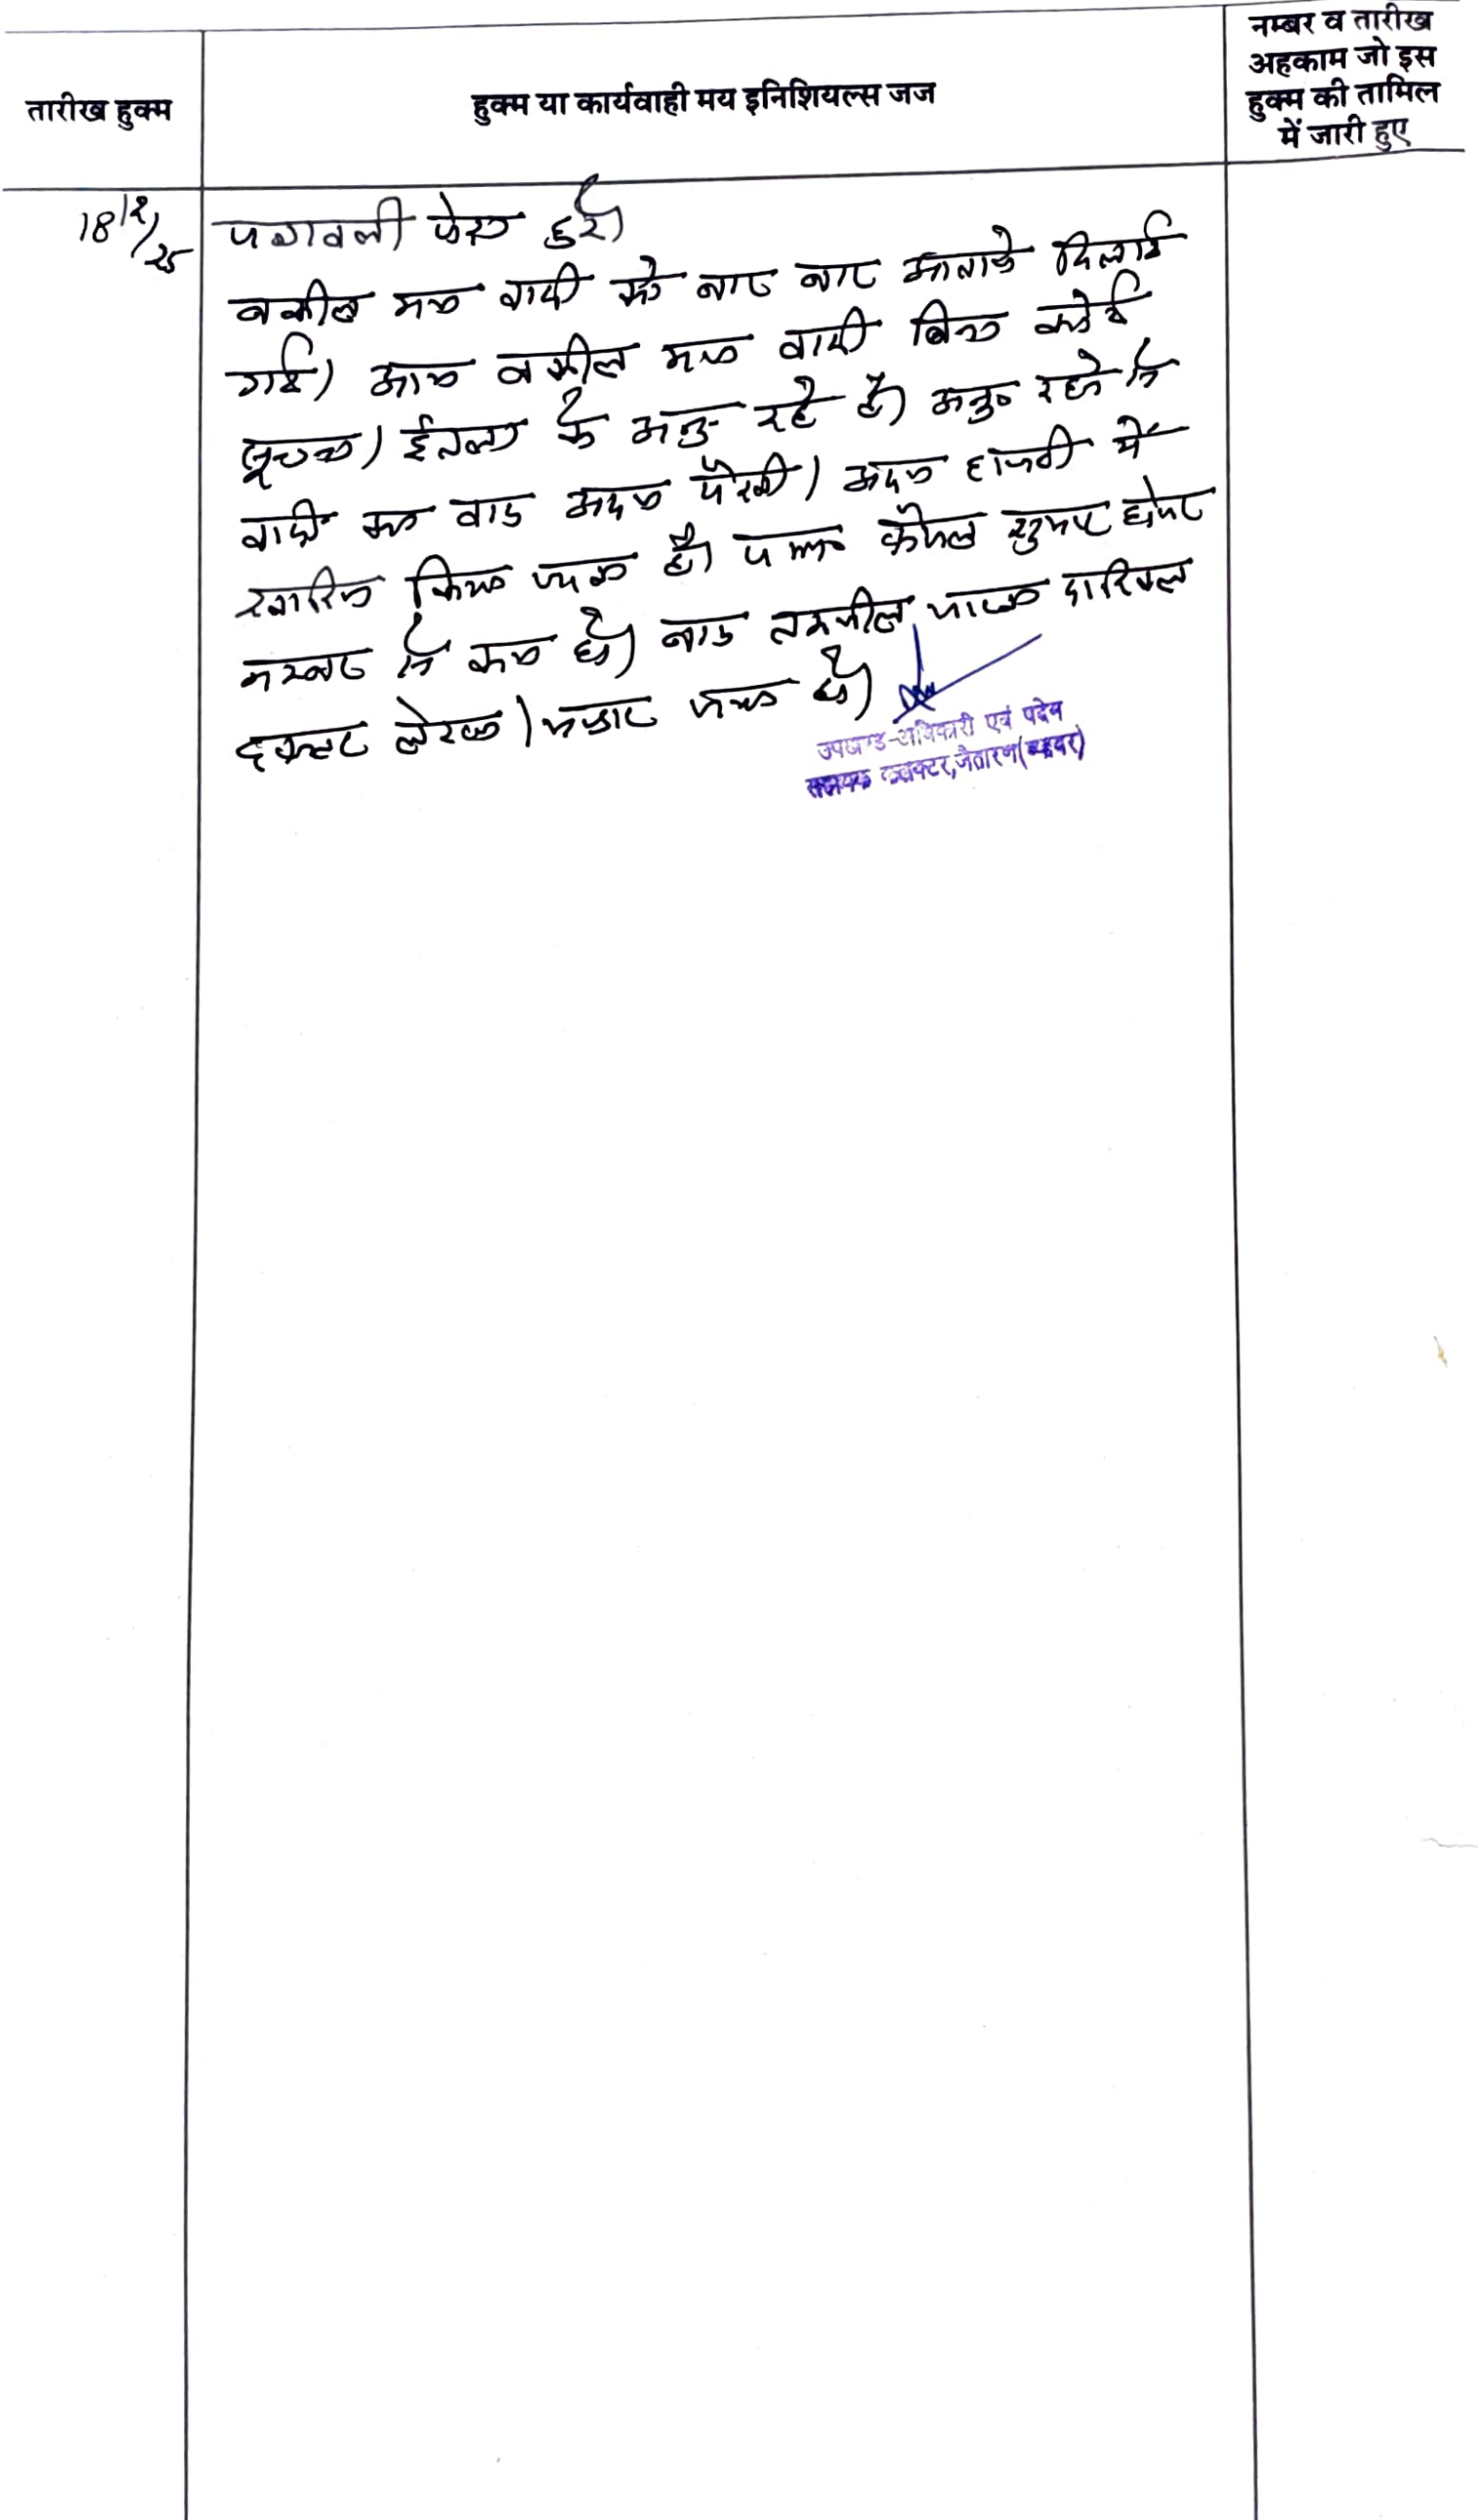 तारीख हुक्म
हुक्म या कार्यवाही मय इनिशियल्स जज
नम्बर व तारीख
अहकाम जो इस
हुक्म की तामिल
में जारी हुए
18/2/25
पत्रावली पेश हुई।
वकील मय वादी को बार बार आवाजे दिलाई
गई। आज वकील मय वादी बिना कोई
सूचना। ईतला के रहे है। रहने से
वादी का वाद अदम पैरवी। अदम हाजरी में
खारिज किया जाता है। फैसल सुमार होकर
नम्बर से कम हो। बाद तकमील दाखिल
दफ्तर लेख।
उपखण्ड-अधिकारी एवं पदेन
सहायक कलक्टर,जैतारण(ब्यावर)